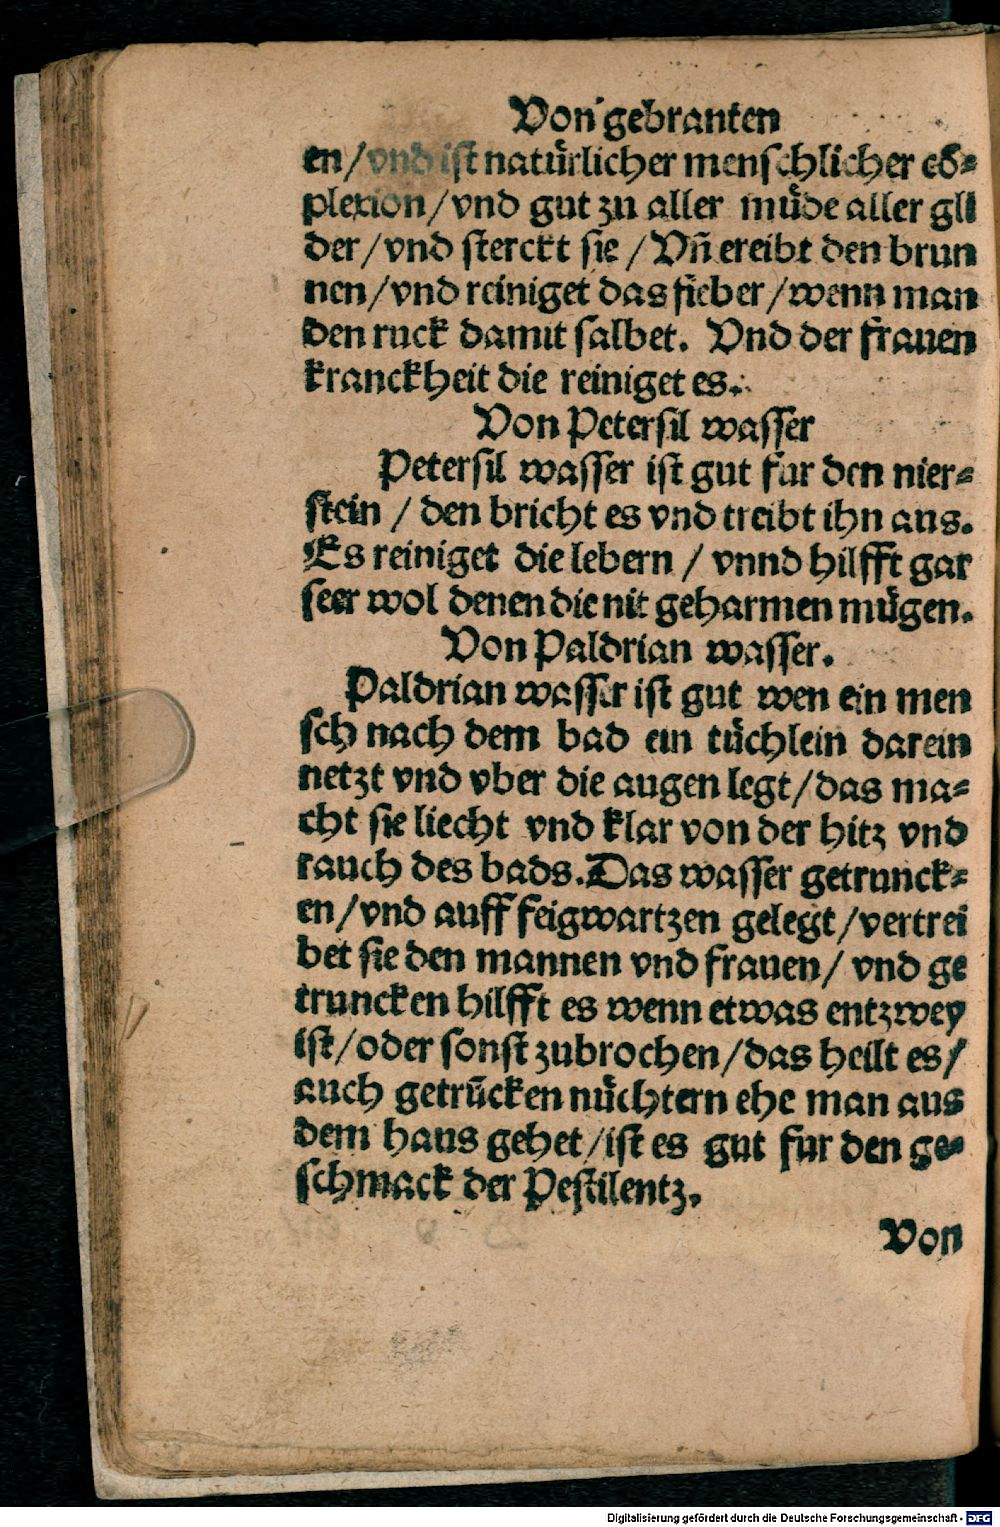 Von gebranten
en/vnd ist natürlicher menschlicher cō-
plexion/vnd gut zu aller müde aller gli
der/vnd sterckt sie/Vñ ereibt den brun
nen/vnd reiniget das fieber/wenn man
den ruck damit salbet. Vnd der frauen
kranckheit die reiniget es.
Von Petersil wasser
Petersil wasser ist gut fur den nier-
stein / den bricht es vnd treibt ihn aus.
Es reiniget die lebern / vnnd hilfft gar
seer wol denen die nit geharmen mügen.
Von Paldrian wasser.
Paldrian wasser ist gut wen ein men
sch nach dem bad ein tüchlein darein
netzt vnd vber die augen legt/das ma-
cht sie liecht vnd klar von der hitz vnd
rauch des bads. Das wasser getrunck-
en/vnd auff feigwartzen gelegt/vertrei
bet sie den mannen vnd frauen/ vnd ge
truncken hilfft es wenn etwas entzwey
ist/oder sonst zubrochen/das heilt es/
auch getrūcken nüchtern ehe man aus
dem haus gehet/ist es gut fur den ge-
schmack der Pestilentz.
Von
Digitalisierung gefördert durch die Deutsche Forschungsgemeinschaft - DFG